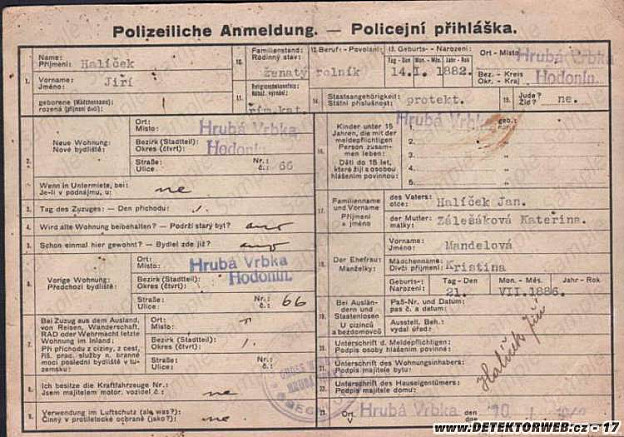 Polizeiliche Anmeldung. — Policejní přihláška.
1. Name: Příjmení: Halíček
Vorname: Jméno: Jiří
geborene (Mädchenname): rozená (příjmení dívčí):
10. Familienstand: Rodinný stav: ženatý
11. Religionsbekenntnis: Nábož. vyznání: řím.kat.
12. Beruf: - Povolání: rolník
13. Geburts- - Narození: Tag - Den Mon. - Měs. Jahr - Rok
14.I. 1882.
Ort - Místo Hrubá Vrbka
Bez. - Kreis Okres Hodonín.
14. Staatsangehörigkeit: Státní příslušnost: protekt.
15. Jude? Žid? ne.
2. Neue Wohnung: Nové bydliště:
Ort: Místo: Hrubá Vrbka
Bezirk (Stadtteil): Okres (čtvrť): Hodonín
Straße: Ulice: Nr.: č.: 66
Wenn in Untermiete, bei: Je-li v podnájmu, u: ne
3. Tag des Zuzuges: - Den příchodu:
4. Wird alte Wohnung beibehalten? - Podrží starý byt? ano
5. Schon einmal hier gewohnt? - Bydlel zde již? ano
6. Vorige Wohnung: Předchozí bydliště:
Ort: Místo: Hrubá Vrbka
Bezirk (Stadtteil): Okres (čtvrť): Hodonín.
Straße: Ulice: Nr.: č.: 66
7. Bei Zuzug aus dem Ausland, von Reisen, Wanderschaft, RAD oder Wehrmacht letzte Wohnung im Inland.
Při příchodu z ciziny, z cest, říš. prac. služby n. branné moci poslední bydliště v tuzemsku:
Ort: Místo:
Bezirk (Stadtteil): Okres (čtvrť):
Straße: Ulice: Nr.: č.:
8. Ich besitze die Kraftfahrzeuge Nr.: Jsem majitelem motor. vozidel č.: ne
9. Verwendung im Luftschutz (als was?): Činný v protiletecké ochraně (jako?): ne
16. Kinder unter 15 Jahren, die mit der meldepflichtigen Person zusammen leben:
Děti do 15 let, které žijí s osobou hlášením povinnou:
Hrubá Vrbka
1. geb.: nar.:
2. "
3. "
4. "
5. "
17. Familienname und Vorname Příjmení a jméno
des Vaters: otce: Halíček Jan.
der Mutter: matky: Zálešáková Kateřina.
18. Der Ehefrau: Manželky:
Vorname: Jméno: Mandelová
Mädchenname: Dívčí příjmení: Kristina
Geburts-: Narození: Tag - Den Mon. - Měs. Jahr - Rok
21. VII.1886.
Bei Ausländern und Staatenlosen U cizinců a bezdomovců
Paß-Nr. und Datum: pas č. a datum:
Ausstell. Beh.: vydal úřad:
Unterschrift d. Meldepflichtigen: Podpis osoby hlášením povinné: Halíček Jiří
Unterschrift des Wohnungsinhabers: Podpis majitele bytu:
Unterschrift des Hauseigentümers: Podpis majitele domu:
Ort V Hrubá Vrbka den dne 10.
www.DETEKTORWEB.cz - 17